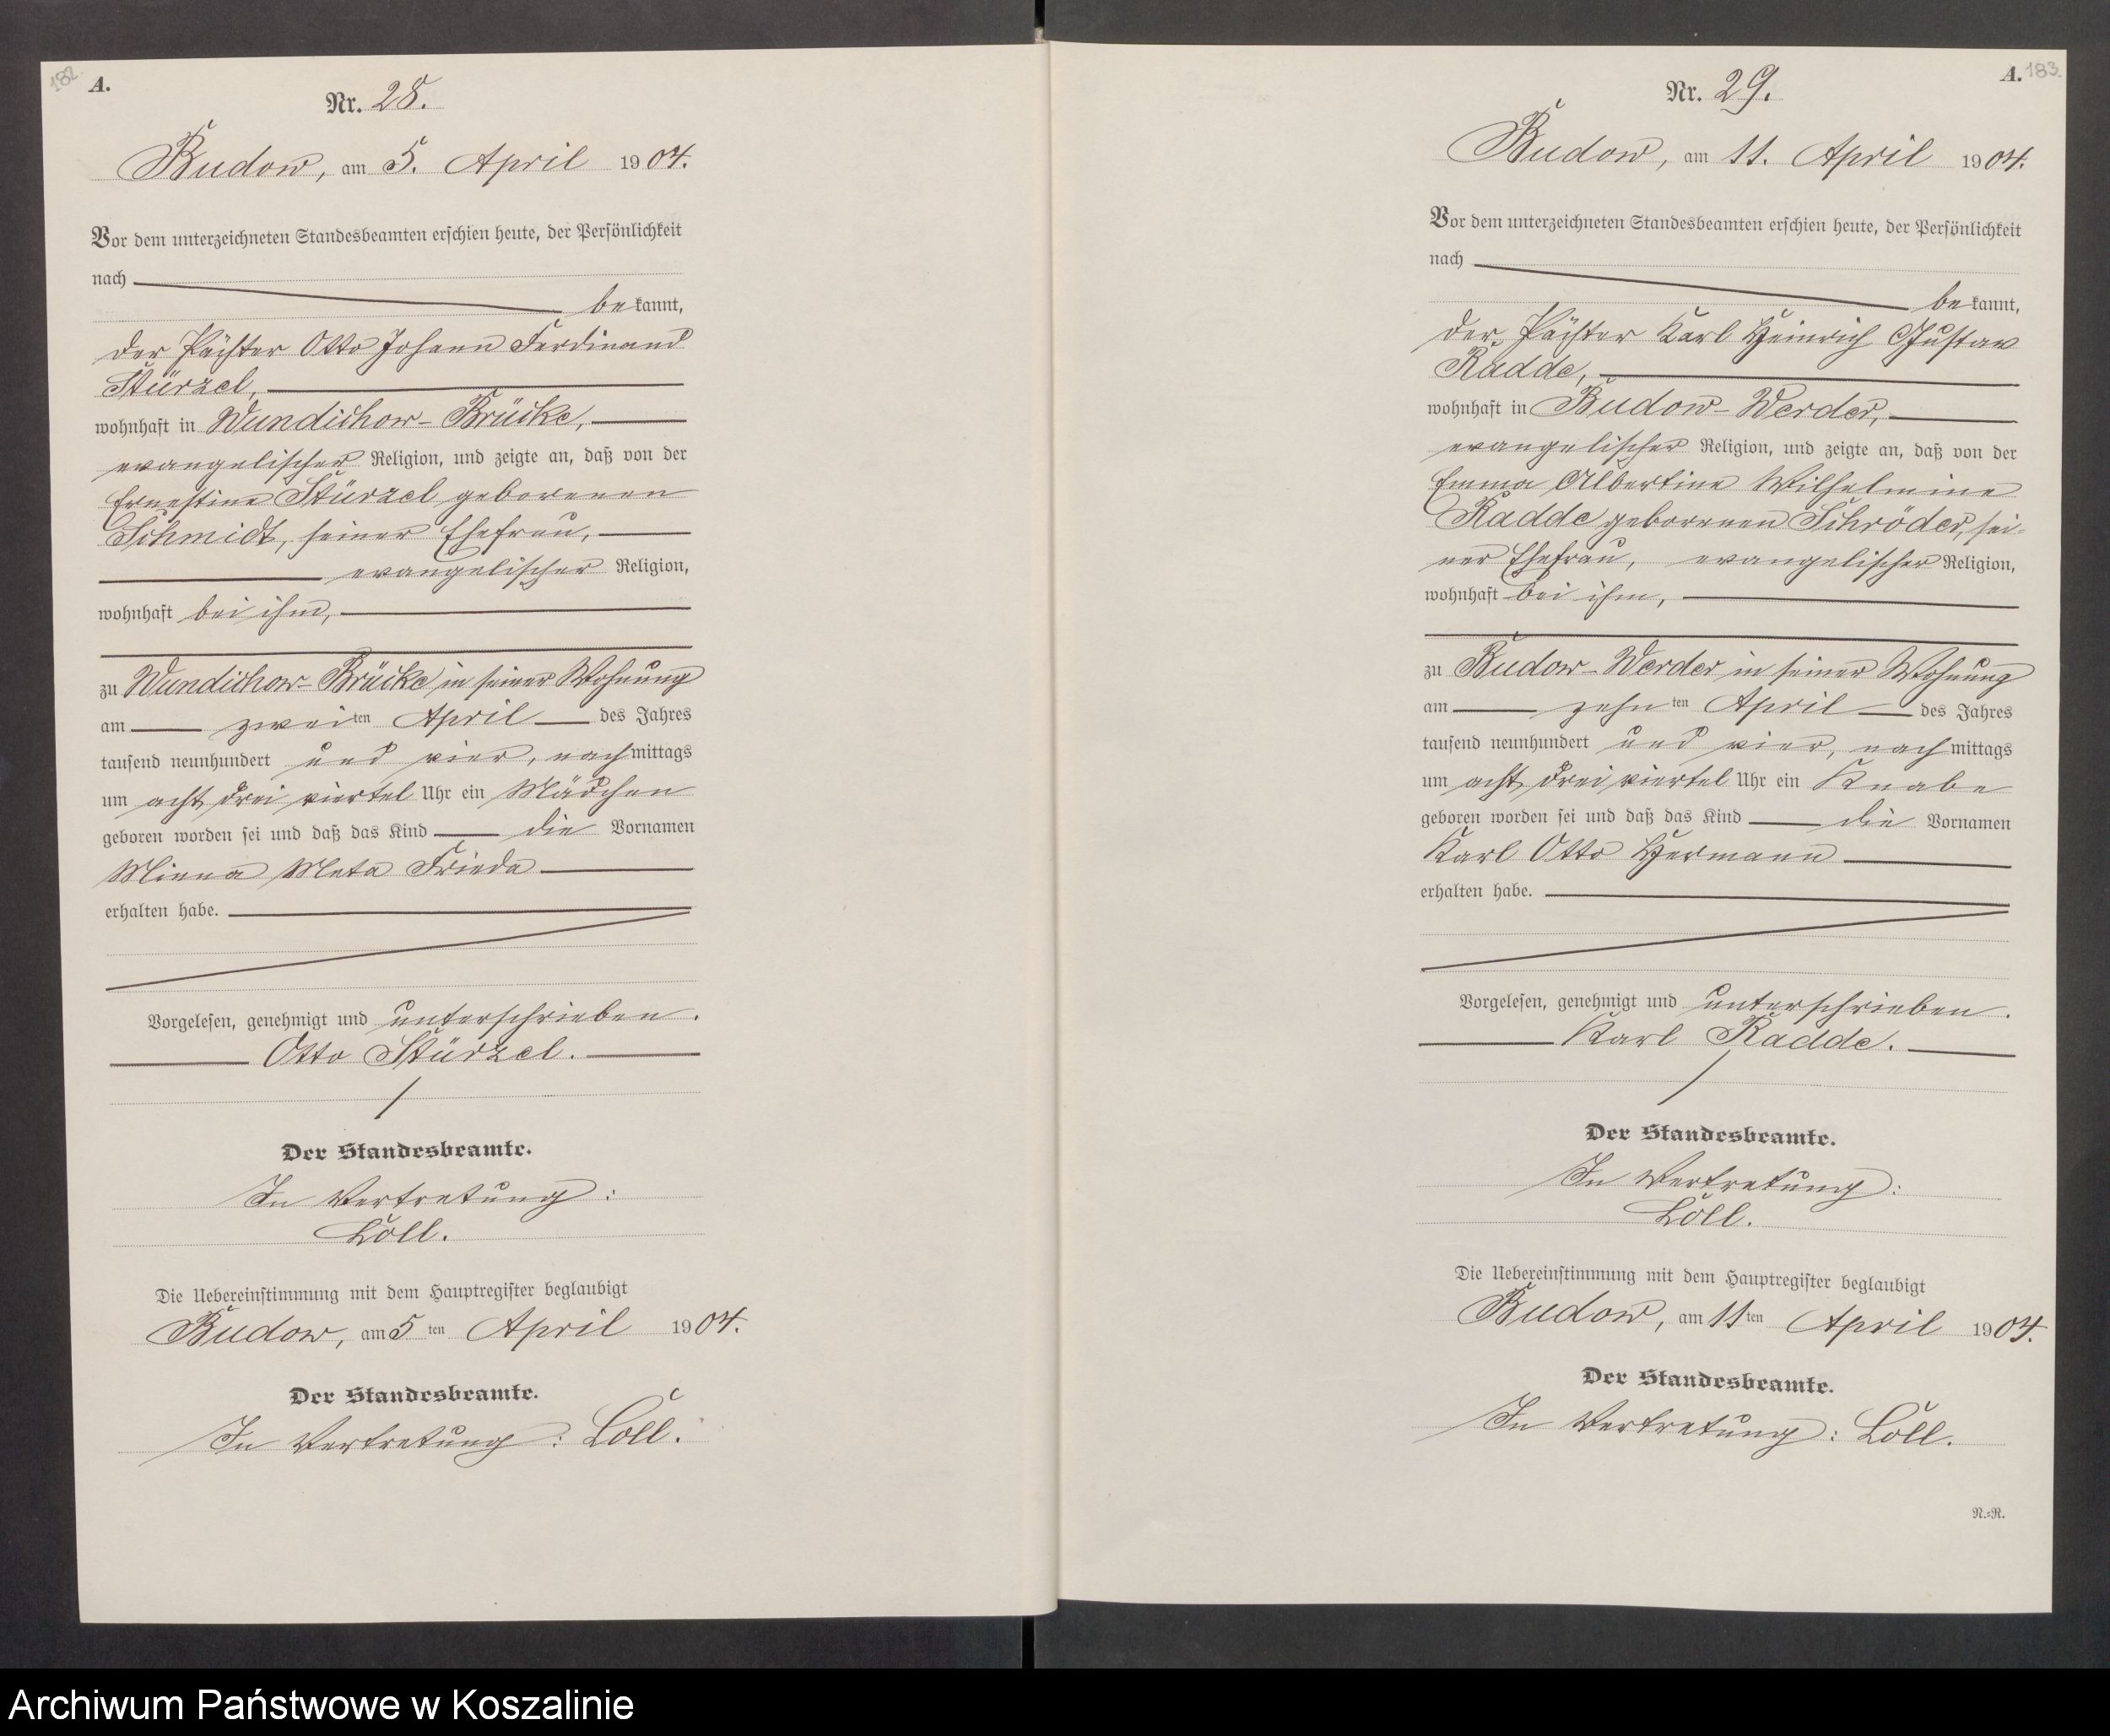 182
A.
Nr. 28.
Budow, am 5. April 1904.
Vor dem unterzeichneten Standesbeamten erschien heute, der Persönlichkeit
nach
bekannt,
der Pächter Otto Johann Ferdinand
Stürzel,
wohnhaft in Wundichow-Brücke,
evangelischer Religion, und zeigte an, daß von der
Ernestine Stürzel geborenen
Schmidt, seiner Ehefrau,
evangelischer Religion,
wohnhaft bei ihm,
zu Wundichow-Brücke in seiner Wohnung
am zweiten April des Jahres
tausend neunhundert und vier, nachmittags
um acht drei viertel Uhr ein Mädchen
geboren worden sei und daß das Kind die Vornamen
Minna Meta Frieda
erhalten habe.
Vorgelesen, genehmigt und unterschrieben.
Otto Stürzel.
Der Standesbeamte.
In Vertretung:
Löll.
Die Uebereinstimmung mit dem Hauptregister beglaubigt
Budow, am 5ten April 1904.
Der Standesbeamte.
In Vertretung: Löll.
A. 183.
Nr. 29.
Budow, am 11. April 1904.
Vor dem unterzeichneten Standesbeamten erschien heute, der Persönlichkeit
nach
bekannt,
der Pächter Karl Heinrich Gustav
Radde,
wohnhaft in Budow-Werder,
evangelischer Religion, und zeigte an, daß von der
Emma Albertine Wilhelmine
Radde geborenen Schröder, sei-
ner Ehefrau, evangelischer Religion,
wohnhaft bei ihm,
zu Budow-Werder in seiner Wohnung
am zehnten April des Jahres
tausend neunhundert und vier, nachmittags
um acht drei viertel Uhr ein Knabe
geboren worden sei und daß das Kind die Vornamen
Karl Otto Hermann
erhalten habe.
Vorgelesen, genehmigt und unterschrieben.
Karl Radde.
Der Standesbeamte.
In Vertretung:
Löll.
Die Uebereinstimmung mit dem Hauptregister beglaubigt
Budow, am 11ten April 1904.
Der Standesbeamte.
In Vertretung: Löll.
N.=R.
Archiwum Państwowe w Koszalinie